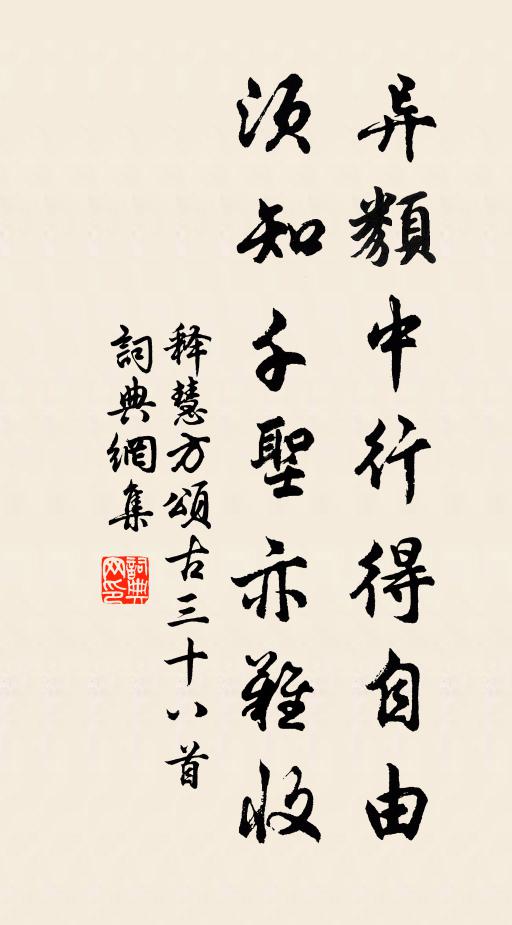 异類中行得自由
須知千聖亦難收
释慧方頌古三十八首
詞典網集
詞典网印